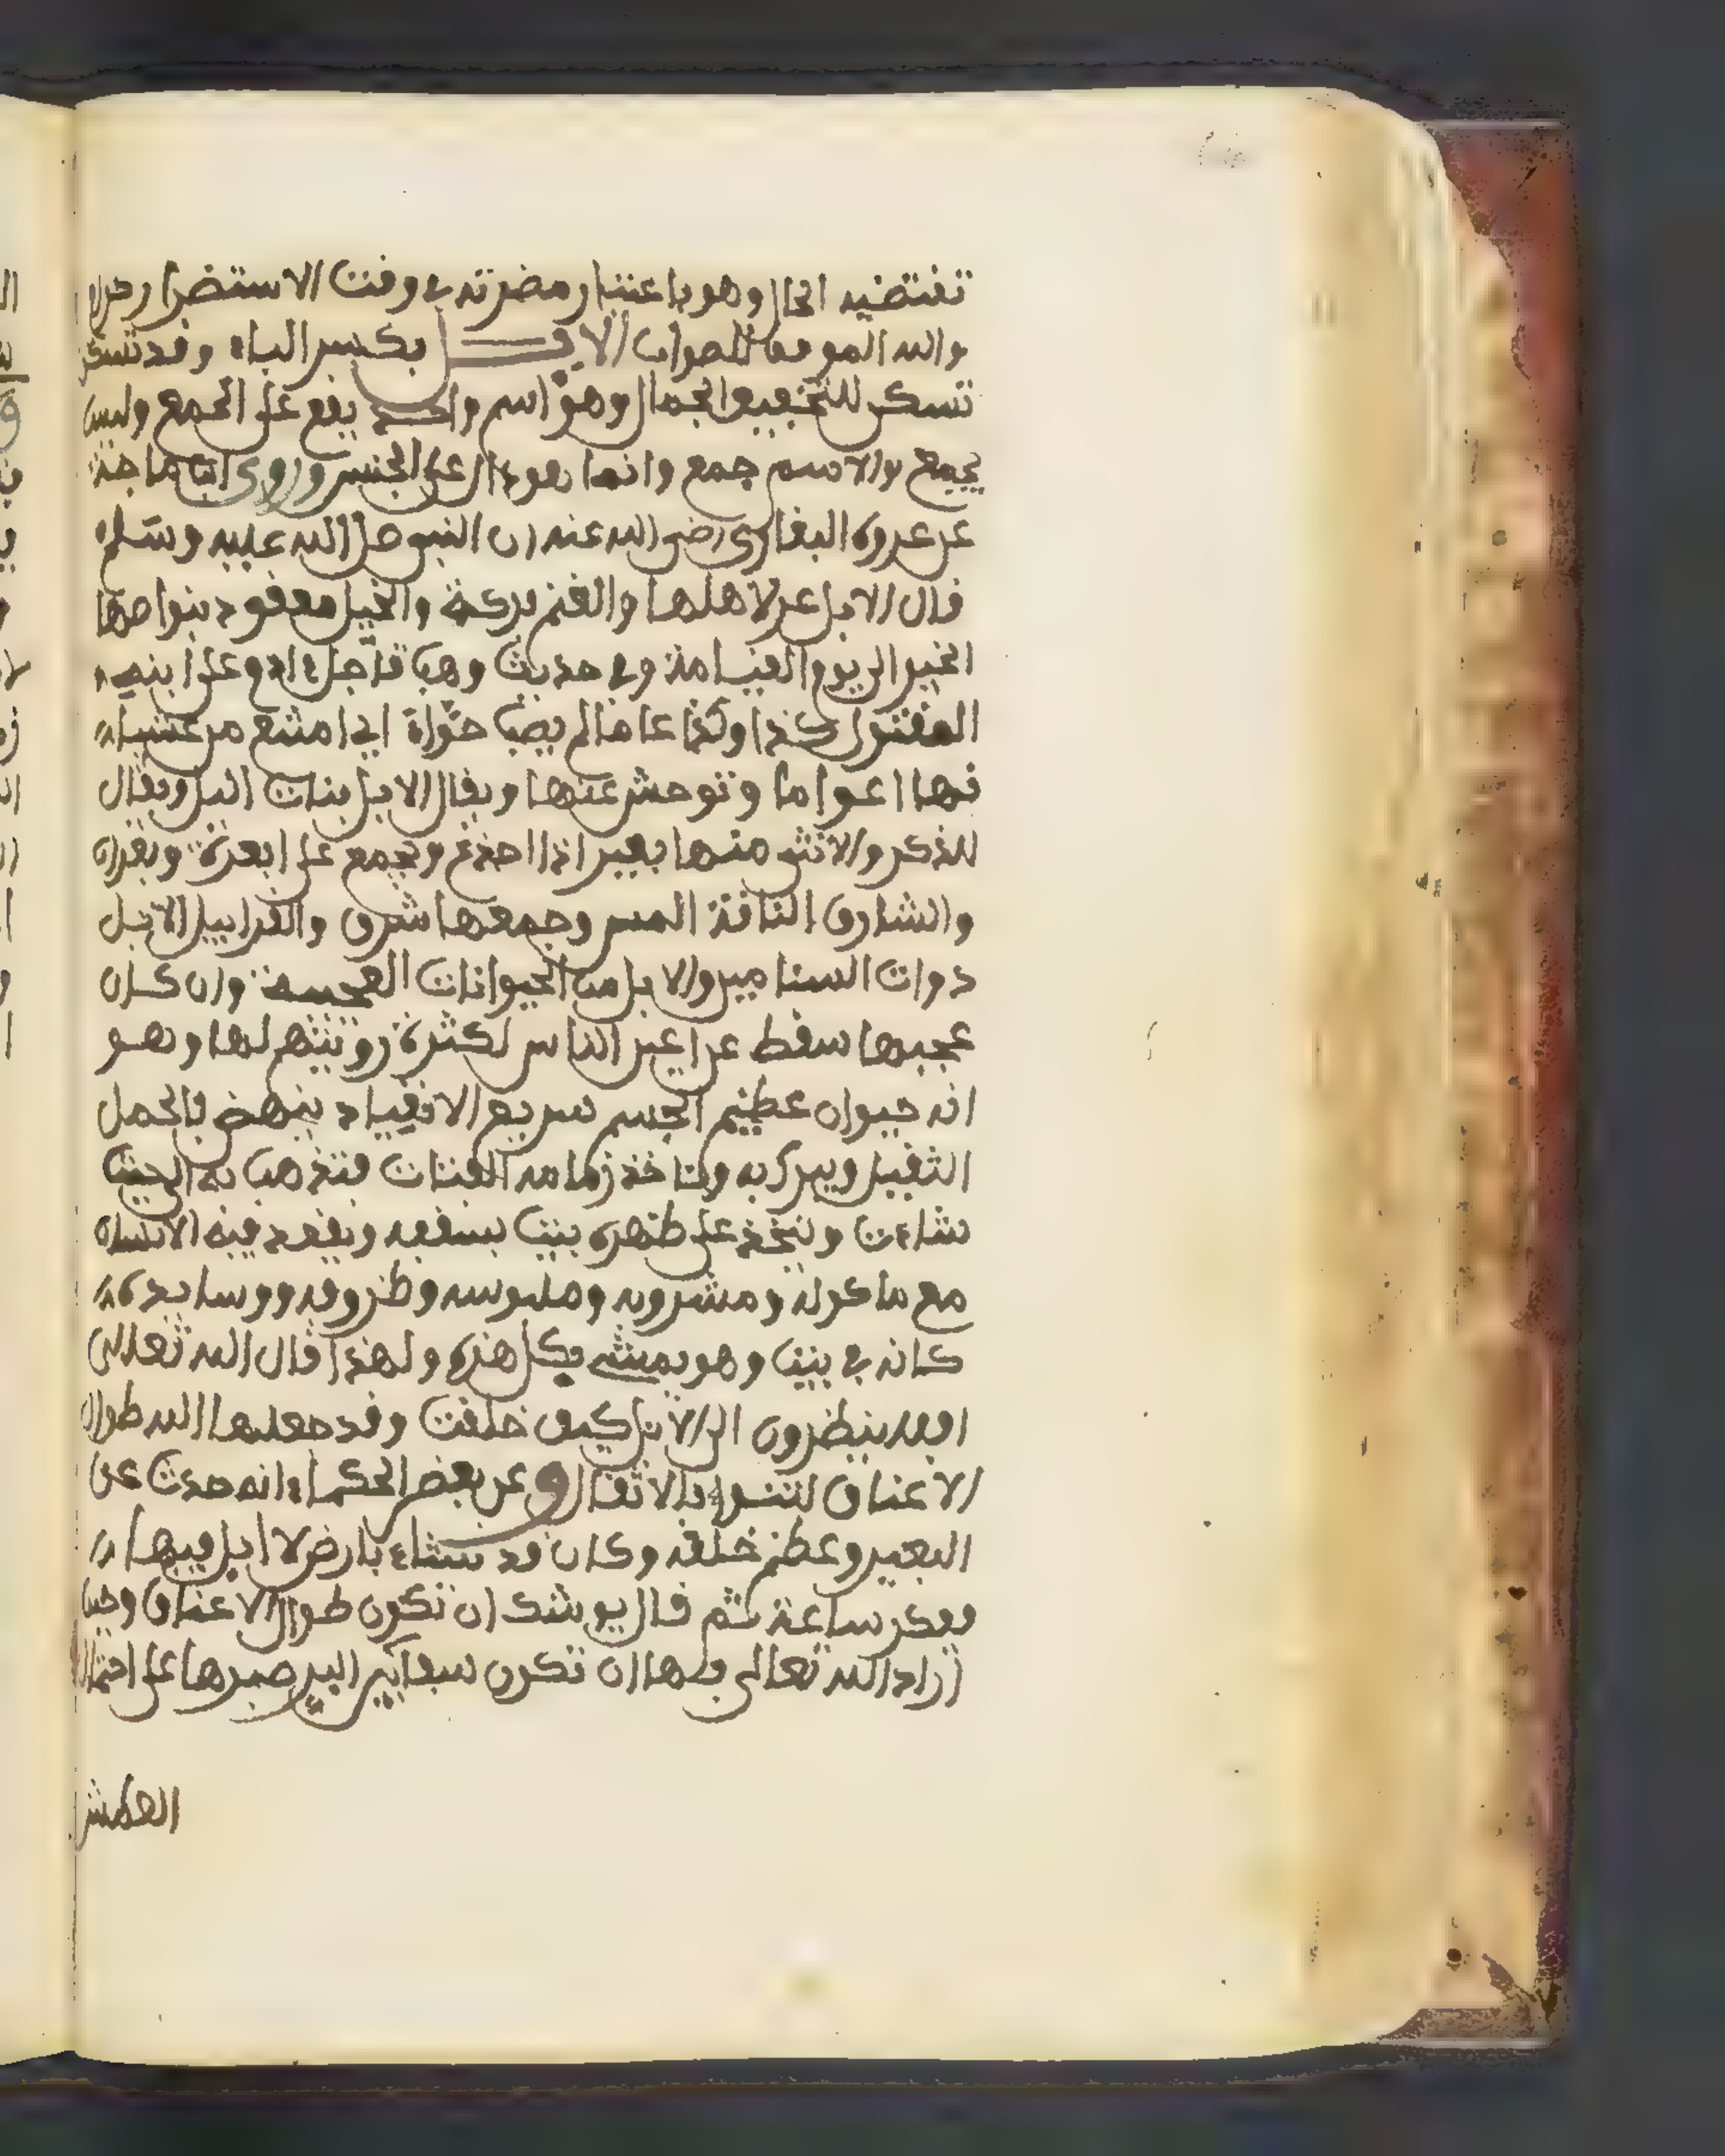 تقتضيه الحال وهو باعتبار مضرته في وقت الاستضرار
والله الموفق للصواب الابل بكسر الباء وقد تسكن
تسكن للتخفيف الجمال وهو اسم واحد يقع على الجمع وليس
بجمع ولا اسم جمع وانما هو دال على الجنس وروى ابن ماجة
عن عروة البارقى رضي الله عنه ان النبي صلى الله عليه وسلم
قال الابل عز لاهلها والغنم بركة والخيل معقود بنواصها
الخير الى يوم القيامة وفي حديث وهب تأبل ءادم على ابنه
المقتول كذا وكذا عاما لم يصب حواء اي امتنع من غشيان
نها اعواما وتوحش عنها ويقال الابل بنات اليل ويقال
للذكر والانثى منها بعير اذا اجذع ويجمع على ابعرة وبعران
والشارف الناقة المسن وجمعها شرف والقرابيل الابل
دوات السنامين والابل من الحيوانات العجيبة وان كان
عجبها سقط عن اعين الناس لكثرة رويتهم لها وهو
انه حيوان عظيم الجسم سريع الانقياد ينهض بالحمل
الثقيل ويبرك به وتاخذ زمامه الفتات فتذهب به الى حيث
شاءت ويتخذ على ظهره بيت بسقفه ويقعد فيه الانسان
مع ماكوله ومشروبه وملبوسه وظروفه ووسايده
كانه في بيت وهو يمشي بكل هذه ولهذا قال الله تعالى
افلا ينظرون الى الابل كيف خلقت وقد جعلها الله طوال
الاعناق لتنوء بالاثقال وعن بعض الحكماء انه حدث عن
البعير وعظم خلقه وكان قد نشاء بارض لا ابل فيها
ففكر ساعة ثم قال يوشك ان تكون طوال الاعناق وحيث
اراد الله تعالى بها ان تكون سفاين البر صبرها على احتمال
العطش